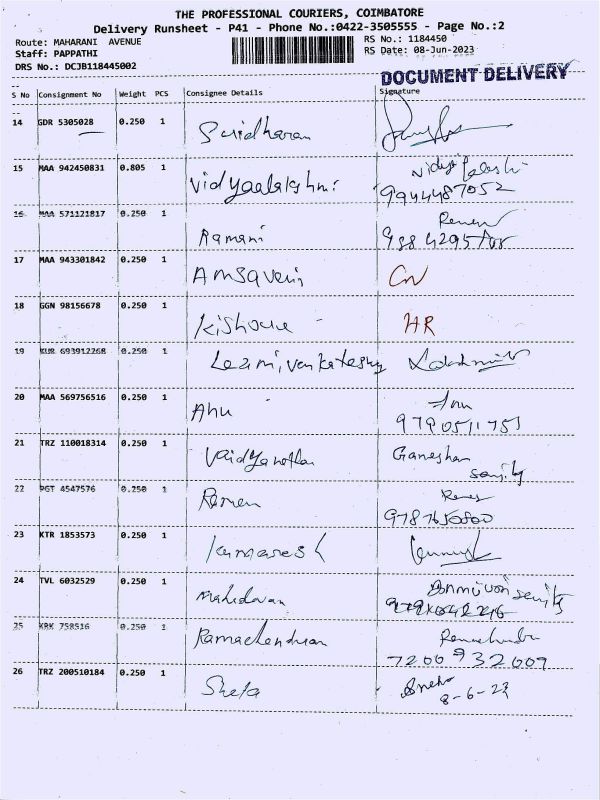 THE PROFESSIONAL COURIERS, COIMBATORE
Delivery Runsheet - P41 - Phone No.:0422-3505555 - Page No.:2
Route: MAHARANI AVENUE RS No.: 1184450
Staff: PAPPATHI RS Date: 08-Jun-2023
DRS No.: DCJB118445002
DOCUMENT DELIVERY
S No Consignment No Weight PCS Consignee Details Signature
14 GDR 5305028 0.250 1 Sridharan
15 MAA 942450831 0.805 1 Vidyaalakshmi
9944487052
16 MAA 571121817 0.250 1 Ramani
17 MAA 943301842 0.250 1 Amsaveni CN
18 GGN 98156678 0.250 1 Kishore HR
19 KUR 693912268 0.250 1
20 MAA 569756516 0.250 1 Anu Anu
9790511751
21 TRZ 110018314 0.250 1 Vaidyanathan Ganeshan
22 PGT 4547576 0.250 1 Ramen
9787650800
23 KTR 1853573 0.250 1 Kamaresh
24 TVL 6032529 0.250 1 Mahadevan
25 KRK 758516 0.250 1 Ramachandran
7200932009
26 TRZ 200510184 0.250 1 Sneha Sneha
8-6-23